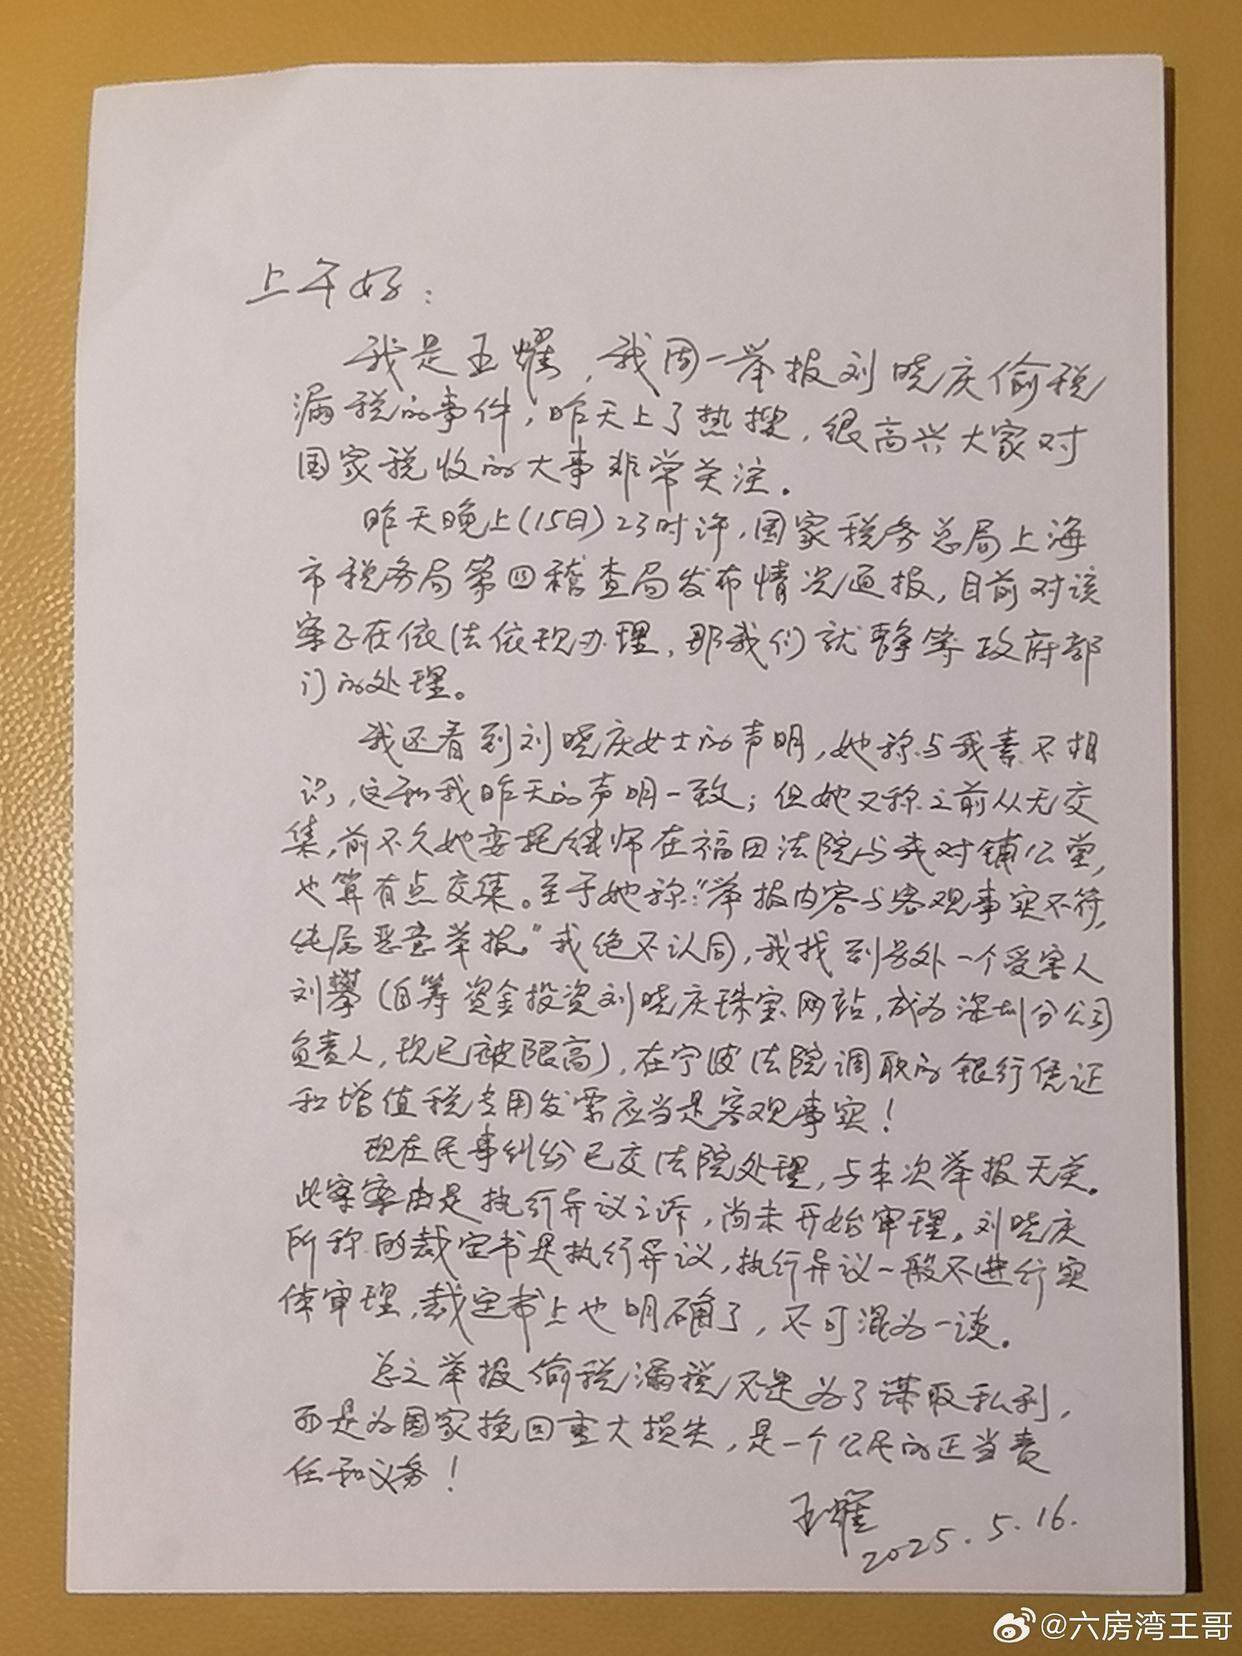 上午好：
我是王耀，我周一举报刘晓庆偷税
漏税的事件，昨天上了热搜，很高兴大家对
国家税收的大事非常关注。
昨天晚上(15日)23时许，国家税务总局上海
市税务局第四稽查局发布情况通报，目前对该
案正在依法依规办理，那我们就静等政府部
门的处理。
我还看到刘晓庆女士的声明，她称与我素不相
识，这和我昨天的声明一致；但她又称之前从无交
集，前不久她委托律师在福田法院与我对铺公堂，
也算有点交集。至于她称："举报内容与客观事实不符，
纯属恶意举报。"我绝不认同，我找到另外一个受害人
刘攀（自筹资金投资刘晓庆珠宝网站，成为深圳分公司
负责人，现已被限高），在宁波法院调取的银行凭证
和增值税专用发票应当是客观事实！
现在民事纠纷已交法院处理，与本次举报无关。
此案案由是执行异议之诉，尚未开始审理。刘晓庆
所称的裁定书是执行异议，执行异议一般不进行实
体审理，裁定书上也明确了，不可混为一谈。
总之举报偷税漏税不是为了谋取私利，
而是为国家挽回重大损失，是一个公民的正当责
任和义务！
王耀
2025.5.16.
@六房湾王哥